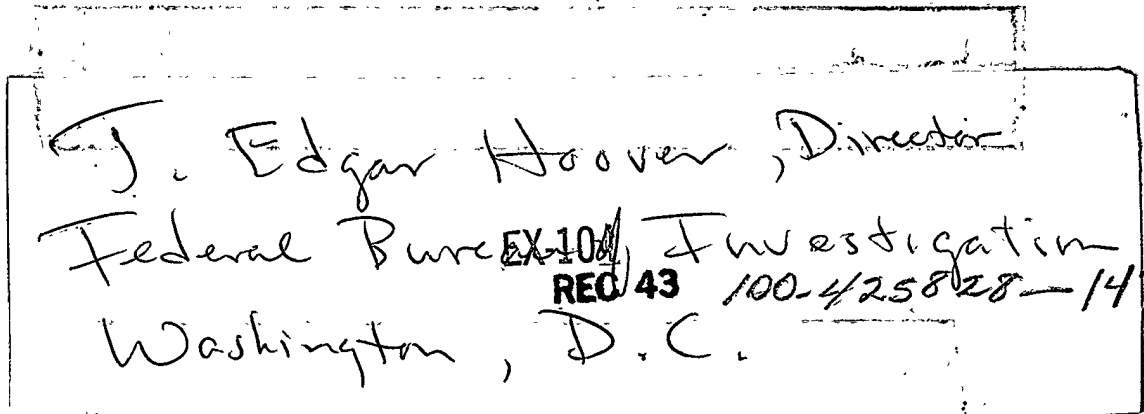 J. Edgar Hoover, Director
Federal Bureau of Investigation
EX-104
REC 43 100-425828-14
Washington, D.C.